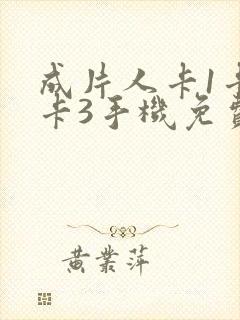 成片人卡1卡
卡3手機免費
黃業萍